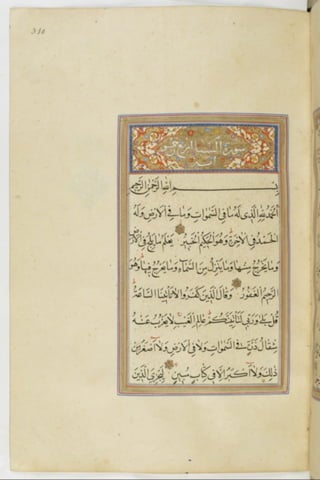 310
سورة السبا
بسم الله الرحمن الرحيم
الحمد لله الذى له ما فى السموات وما فى الارض وله
الحمد فى الاخرة وهو الحكيم الخبير يعلم ما يلج فى الارض
وما يخرج منها وما ينزل من السماء وما يعرج فيها وهو
الرحيم الغفور وقال الذين كفروا لا تاتينا الساعة
قل بلى وربى لتاتينكم عالم الغيب لا يعزب عنه
مثقال ذرة فى السموات ولا فى الارض ولا اصغر من
ذلك ولا اكبر الا فى كتاب مبين ليجزى الذين